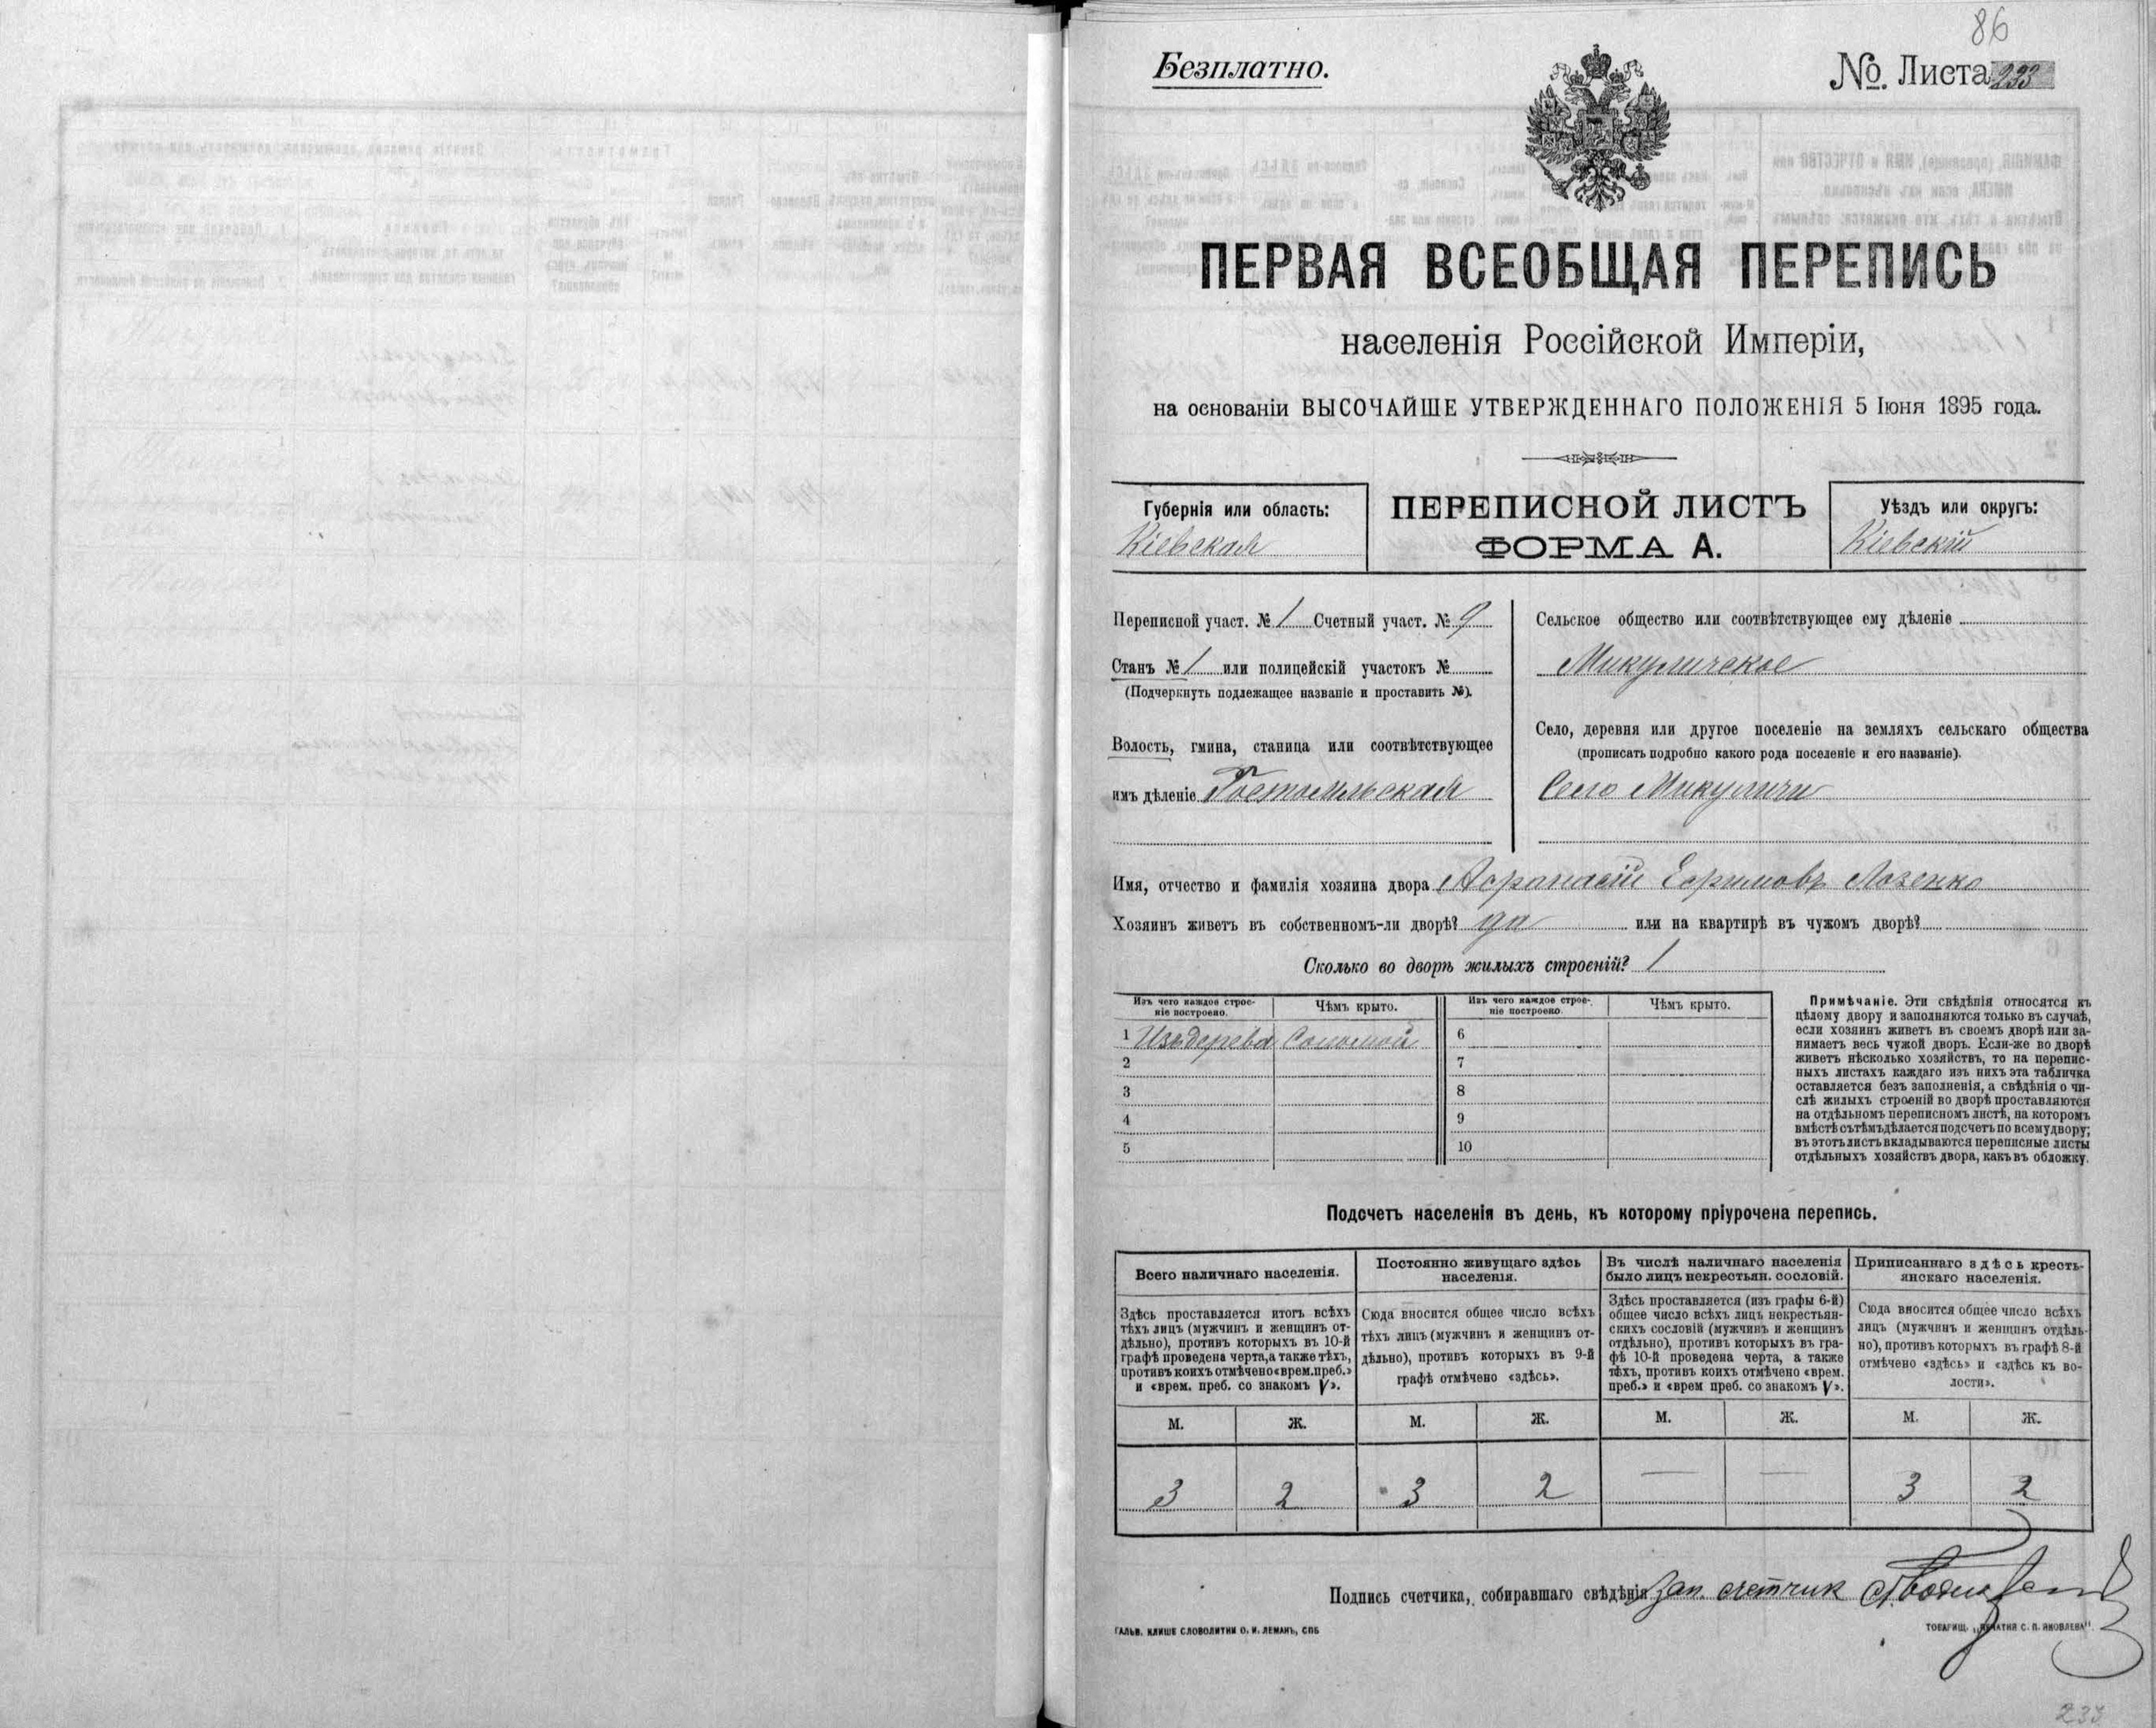 86
Безплатно.
№. Листа 233
ПЕРВАЯ ВСЕОБЩАЯ ПЕРЕПИСЬ
населенія Россійской Имперіи,
на основаніи ВЫСОЧАЙШЕ УТВЕРЖДЕННАГО ПОЛОЖЕНІЯ 5 Іюня 1895 года.
Губернія или область:
Кіевская
ПЕРЕПИСНОЙ ЛИСТЪ
ФОРМА А.
Уѣздъ или округъ:
Кіевскій
Переписной участ. № 1 Счетный участ. № 9
Станъ № 1 или полицейскій участокъ №
(Подчеркнуть подлежащее названіе и проставить №).
Волость, гмина, станица или соотвѣтствующее
имъ дѣленіе Гостомельская
Сельское общество или соотвѣтствующее ему дѣленіе
Микуличское
Село, деревня или другое поселеніе на земляхъ сельскаго общества
(прописать подробно какого рода поселеніе и его названіе).
Село Микуличи
Имя, отчество и фамилія хозяина двора Афанасій Ефимовъ Лозенко
Хозяинъ живетъ въ собственномъ-ли дворѣ? да или на квартирѣ въ чужомъ дворѣ?
Сколько во дворѣ жилыхъ строеній? 1
Изъ чего каждое строе-
ніе построено.
Чѣмъ крыто.
1 Изъ дерева Соломой
2
3
4
5
Изъ чего каждое строе-
ніе построено.
Чѣмъ крыто.
6
7
8
9
10
Примѣчаніе. Эти свѣдѣнія относятся къ
цѣлому двору и заполняются только въ случаѣ,
если хозяинъ живетъ въ своемъ дворѣ или за-
нимаетъ весь чужой дворъ. Если-же во дворѣ
живетъ нѣсколько хозяйствъ, то на перепис-
ныхъ листахъ каждаго изъ нихъ эта табличка
оставляется безъ заполненія, а свѣдѣнія о чи-
слѣ жилыхъ строеній во дворѣ проставляются
на отдѣльномъ переписномъ листѣ, на которомъ
вмѣстѣ съ тѣмъ дѣлается подсчетъ по всему двору;
въ этотъ листъ вкладываются переписные листы
отдѣльныхъ хозяйствъ двора, какъ въ обложку.
Подсчетъ населенія въ день, къ которому пріурочена перепись.
Всего наличнаго населенія.
Здѣсь проставляется итогъ всѣхъ
тѣхъ лицъ (мужчинъ и женщинъ от-
дѣльно), противъ которыхъ въ 10-й
графѣ проведена черта, а также тѣхъ,
противъ коихъ отмѣчено «врем. преб.»
и «врем. преб. со знакомъ V».
М. Ж.
3 2
Постоянно живущаго здѣсь
населенія.
Сюда вносится общее число всѣхъ
тѣхъ лицъ (мужчинъ и женщинъ от-
дѣльно), противъ которыхъ въ 9-й
графѣ отмѣчено «здѣсь».
М. Ж.
3 2
Въ числѣ наличнаго населенія
было лицъ некрестьян. сословій.
Здѣсь проставляется (изъ графы 6-й)
общее число всѣхъ лицъ некрестьян-
скихъ сословій (мужчинъ и женщинъ
отдѣльно), противъ которыхъ въ гра-
фѣ 10-й проведена черта, а также
тѣхъ, противъ коихъ отмѣчено «врем.
преб.» и «врем преб. со знакомъ V».
М. Ж.
— —
Приписаннаго здѣсь кресть-
янскаго населенія.
Сюда вносится общее число всѣхъ
лицъ (мужчинъ и женщинъ отдѣль-
но), противъ которыхъ въ графѣ 8-й
отмѣчено «здѣсь» и «здѣсь къ во-
лости».
М. Ж.
3 2
Подпись счетчика, собиравшаго свѣдѣнія Зап. счетчик
ГАЛЬВ. КЛИШЕ СЛОВОЛИТНИ О. И. ЛЕМАНЪ, СПБ
ТОВАРИЩ. „ПЕЧАТНЯ С. П. ЯКОВЛЕВА".
233